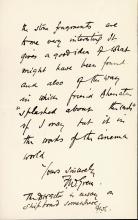 the stone fragments are
very interesting. It
gives a good idea of what
might have been found
and also of the way
in which found
"splashed about the
if I may put it in
the words of the cinema
world
Yours sincerely
The Director is away on
ship bound somewhere